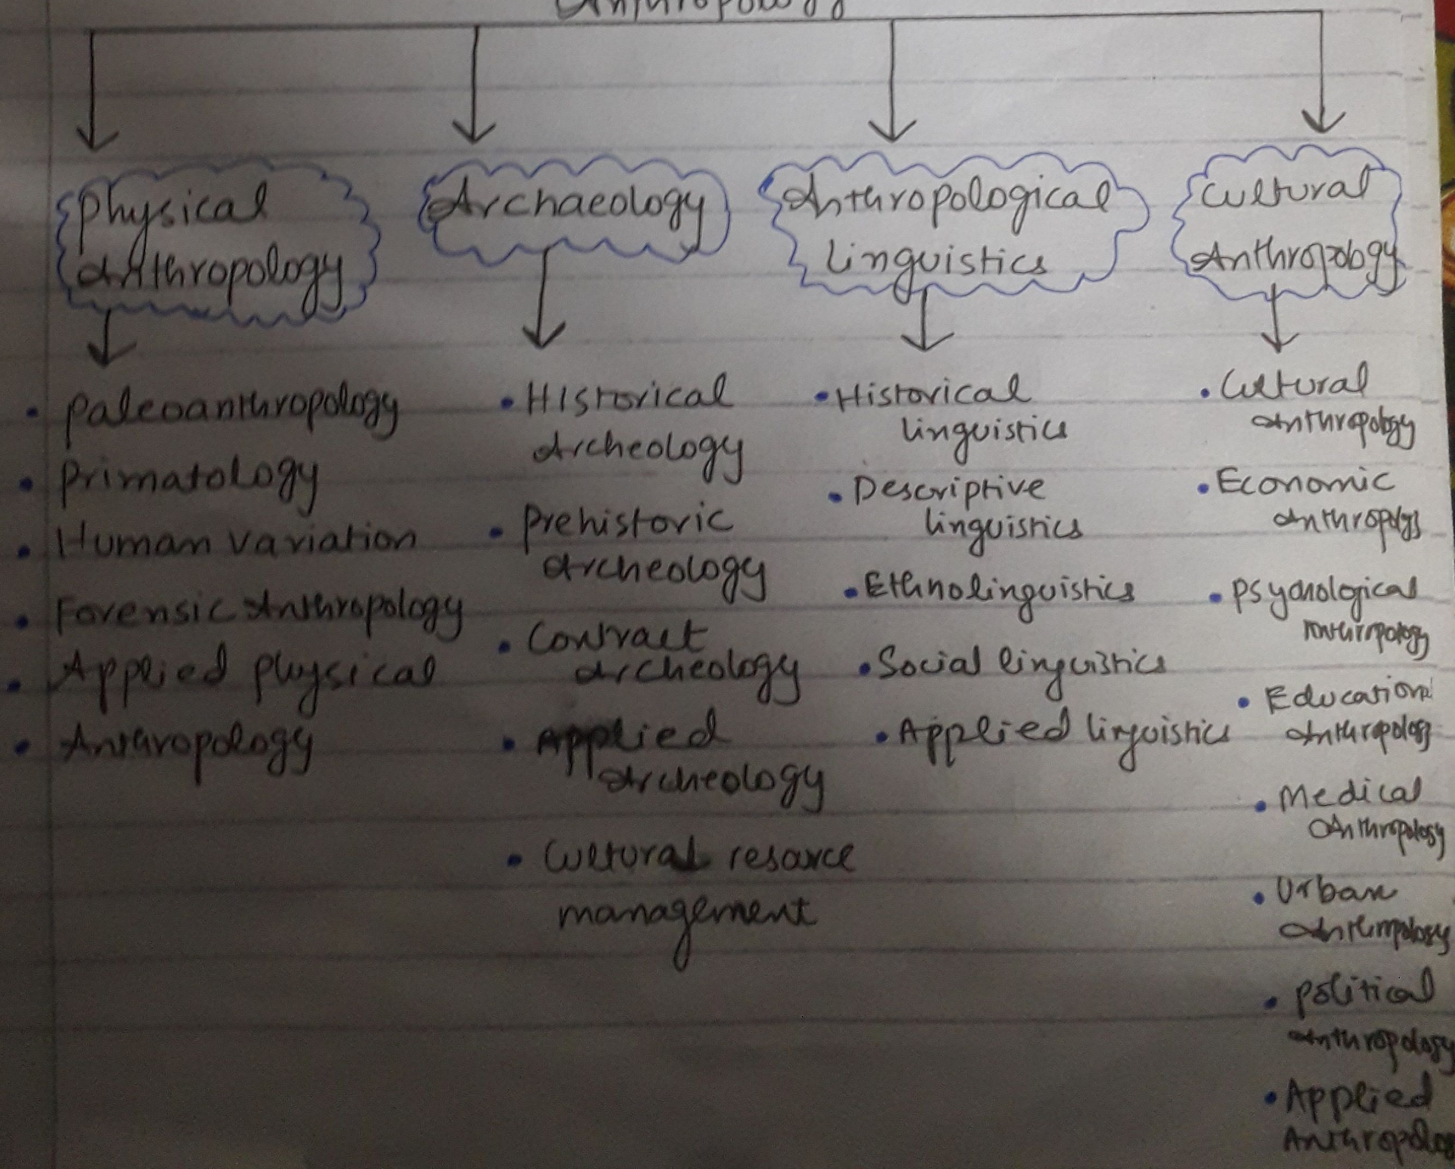 Anthropology
Physical
Anthropology
Archaeology
Anthropological
linguistics
Cultural
Anthropology
• Paleoanthropology
• Primatology
• Human variation
• Forensic Anthropology
• Applied physical
• Anthropology
• Historical
Archeology
• Prehistoric
Archeology
• Contract
Archeology
• Applied
Archeology
• Cultural resarce
management
• Historical
linguistics
• Descriptive
linguistics
• Ethnolinguistics
• Social linguistics
• Applied linguistics
• Cultural
Anthropology
• Economic
Anthropology
• Psychological
Anthropology
• Educational
Anthropology
• Medical
Anthropology
• Urban
Anthropology
• Political
Anthropology
• Applied
Anthropolo